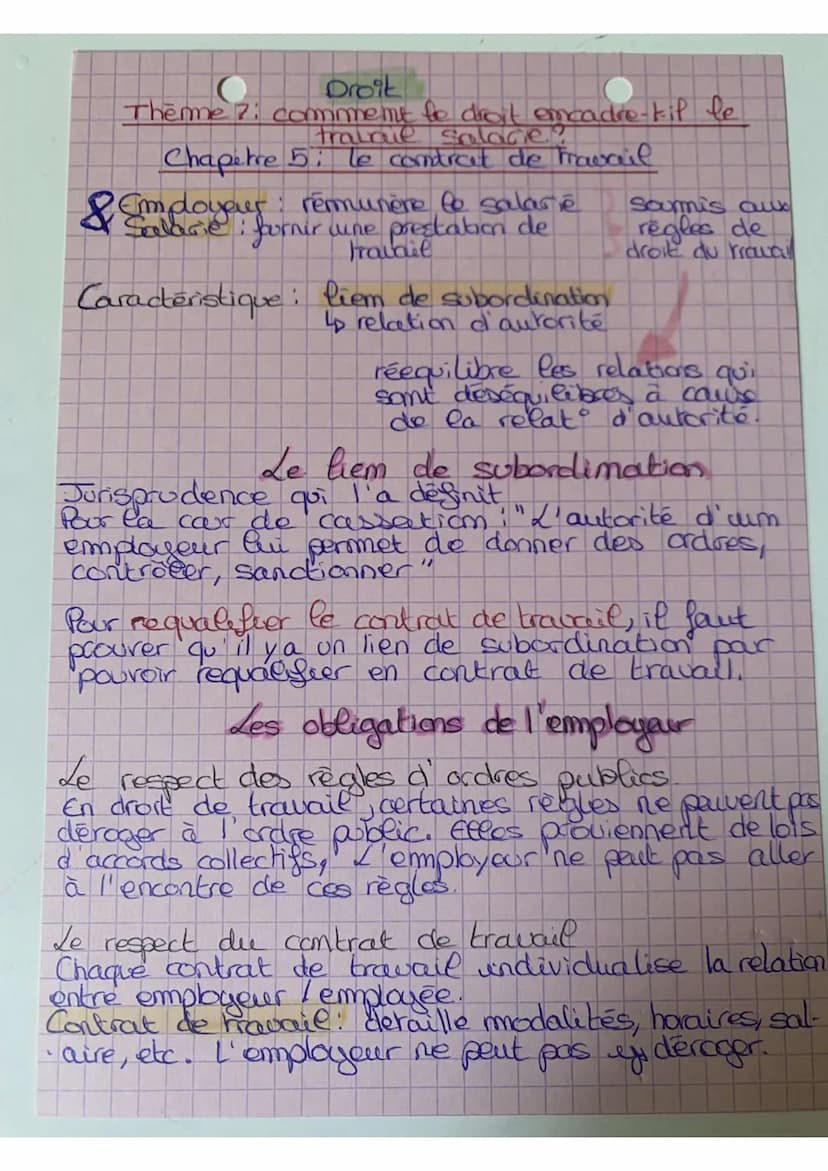 Droit
Thème 7: comment le droit encadre-t-il le
travail salarié?
Chapitre 5: le contrat de travail
& Employeur: rémunère le salarié
Salarié: fornir une prestation de
travail
soumis aux
règles de
droit du travail
Caractéristique: lien de subordination
↳ relation d'autorité
réequilibre les relations qui
sont déséquilibres à cause
de la relat° d'autorité.
Le lien de subordination
Jurisprudence qui l'a définit
Pour la cour de cassation: "L'autorité d'um
employeur lui permet de donner des ordres,
contrôler, sanctionner"
Pour requalifier le contrat de travail, il faut
prouver qu'il y a un lien de subordination par
pouvoir requalifier en contrat de travail.
Les obligations de l'employeur
Le respect des règles d'ordres publics.
En droit de travail, certaines règles ne peuvent pas
déroger à l'ordre public. Elles proviennent de lois
d'accords collectifs, L'employeur ne peut pas aller
à l'encontre de ces règles.
Le respect du contrat de travail
Chaque contrat de travail individualise la relation
entre employeur / employée.
Contrat de travail: détaille modalités, horaires, sal-
aire, etc. L'employeur ne peut pas y déroger.